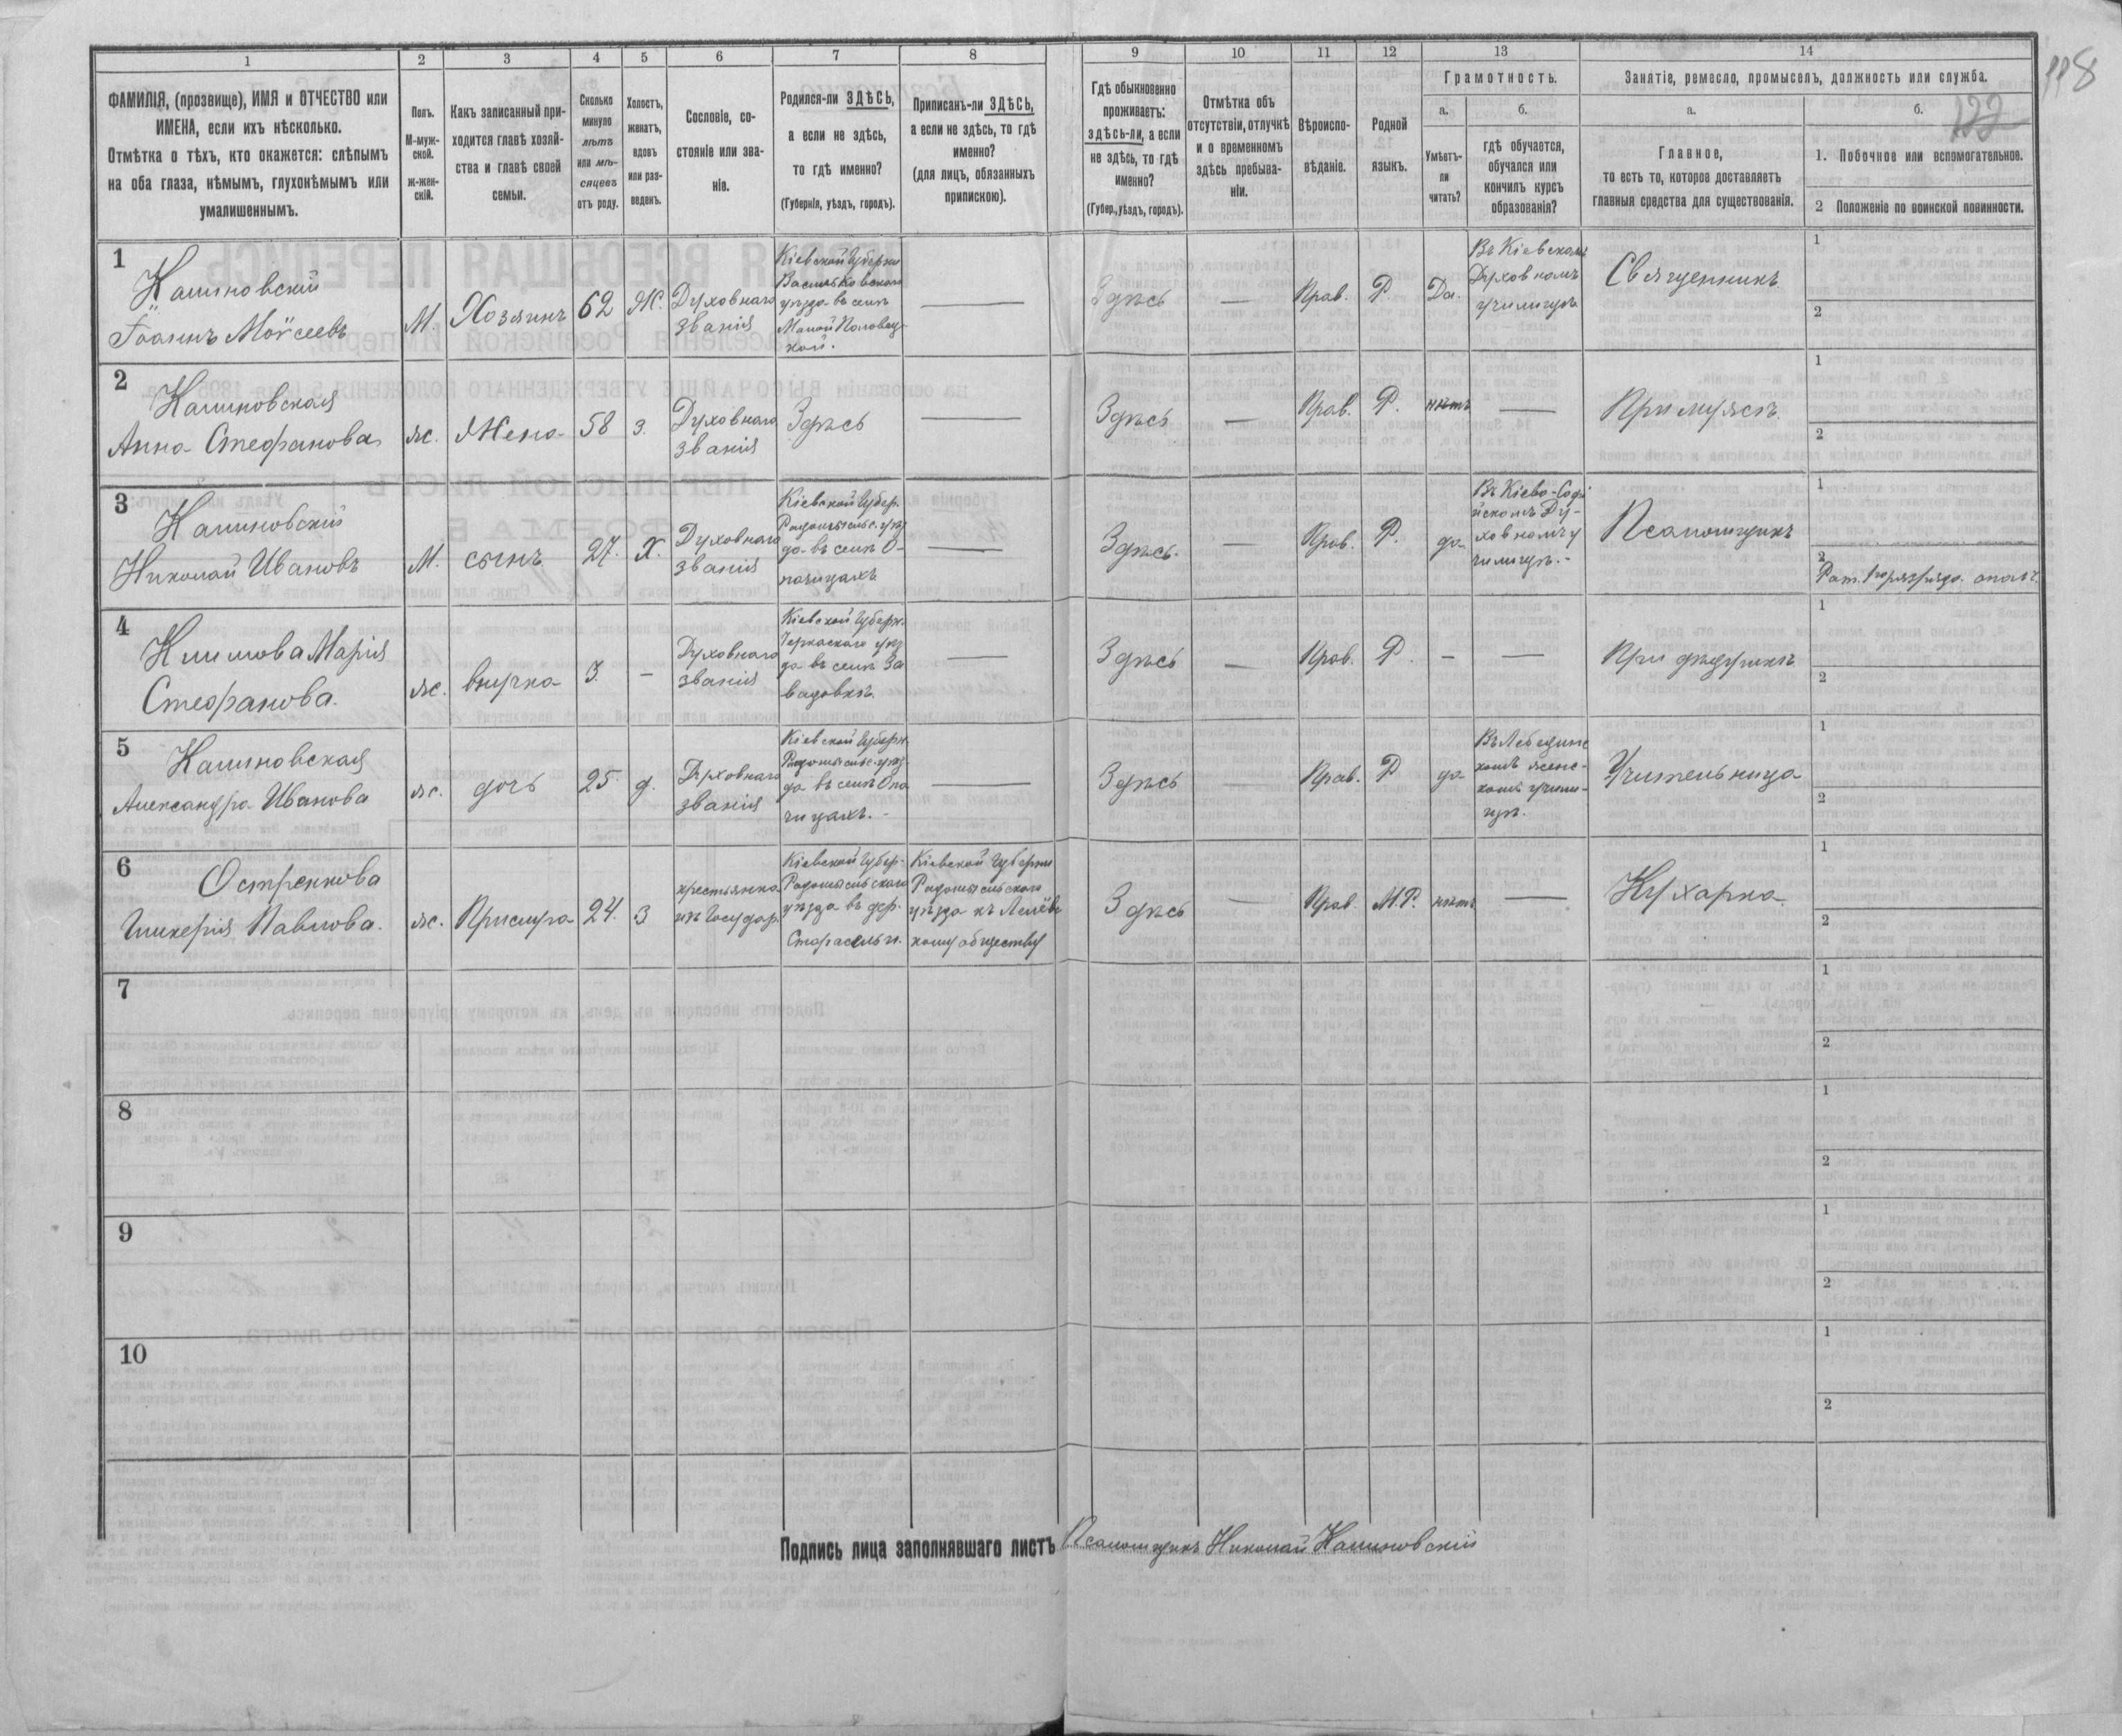 118
122
1 2 3 4 5 6 7 8 9 10 11 12 13 14
ФАМИЛІЯ, (прозвище), ИМЯ и ОТЧЕСТВО или
ИМЕНА, если ихъ нѣсколько.
Отмѣтка о тѣхъ, кто окажется: слѣпымъ
на оба глаза, нѣмымъ, глухонѣмымъ или
умалишеннымъ.
Полъ.
М-муж-
ской.
ж-жен-
скій.
Какъ записанный при-
ходится главѣ хозяй-
ства и главѣ своей
семьи.
Сколько
минуло
лѣтъ
или мѣ-
сяцевъ
отъ роду.
Холостъ,
женатъ,
вдовъ
или раз-
веденъ.
Сословіе, со-
стояніе или зва-
ніе.
Родился-ли ЗДѢСЬ,
а если не здѣсь,
то гдѣ именно?
(Губернія, уѣздъ, городъ).
Приписанъ-ли ЗДѢСЬ,
а если не здѣсь, то гдѣ
именно?
(для лицъ, обязанныхъ
припискою).
Гдѣ обыкновенно
проживаетъ:
здѣсь-ли, а если
не здѣсь, то гдѣ
именно?
(Губер., уѣздъ, городъ).
Отмѣтка объ
отсутствіи, отлучкѣ
и о временномъ
здѣсь пребыва-
ніи.
Вѣроиспо-
вѣданіе.
Родной
языкъ.
Грамотность.
а.
Умѣетъ-
ли
читать?
б.
гдѣ обучается,
обучался или
кончилъ курсъ
образованія?
Занятіе, ремесло, промыселъ, должность или служба.
а.
Главное,
то есть то, которое доставляетъ
главныя средства для существованія.
б.
1. Побочное или вспомогательное.
2 Положеніе по воинской повинности.
1
Калиновскій
Іоаннъ Моѵсеевъ
М.
Хозяинъ
62
Ж.
Духовнаго
званія
Кіевской Губерніи
Васильковскаго
уѣзда въ селѣ
Малой Половец-
кой.
—
Здѣсь
—
Прав.
Р.
Да.
Въ Кіевскомъ
Духовномъ
училищѣ
Священникъ
1
2
2
Калиновская
Анна Стефанова
ж.
Жена
58
З.
Духовнаго
званія
Здѣсь
—
Здѣсь
—
Прав.
Р.
нѣтъ
—
При мужѣ
1
2
3
Калиновскій
Николай Ивановъ
М.
сынъ
27.
Х.
Духовнаго
званія
Кіевской Губер.
Радомысльс. уѣз
да въ селѣ О-
пачицахъ
—
Здѣсь.
—
Прав.
Р.
да
Въ Кіево-Софі
йскомъ Ду-
ховномъ у
чилищѣ.-
Псаломщикъ
1
2
Рат. 1го разряда ополч.
4
Климова Марія
Стефанова.
ж.
внучка
3.
—
Духовнаго
званія
Кіевской Губерн.
Черкаскаго уѣз
да въ селѣ За
вадовкѣ.
—
Здѣсь
—
Прав.
Р.
—
—
При дѣдушкѣ
1
2
5
Калиновская
Александра Иванова
ж.
дочь
25.
д.
Духовнаго
званія
Кіевской Губерн.
Радомысльс. уѣз-
да въ селѣ Опа
чицахъ.-
—
Здѣсь
—
Прав.
Р
да
Въ Лебединс
комъ женс-
комъ учили-
щѣ.
Учительница
1
2
6
Гликерія Павлова.
ж.
Прислуга
24.
З
крестьянка
изъ Государ.
Кіевской Губер-
Радомысльскаго
уѣзда въ дер.
Кіевской Губерніи
Радомысльскаго
уѣзда къ
кому обществу
Здѣсь
—
Прав.
М.Р.
нѣтъ
—
Кухарка
1
2
7
1
2
8
1
2
9
1
2
10
1
2
Подпись лица заполнявшаго листъ Псаломщикъ Николай Калиновскій